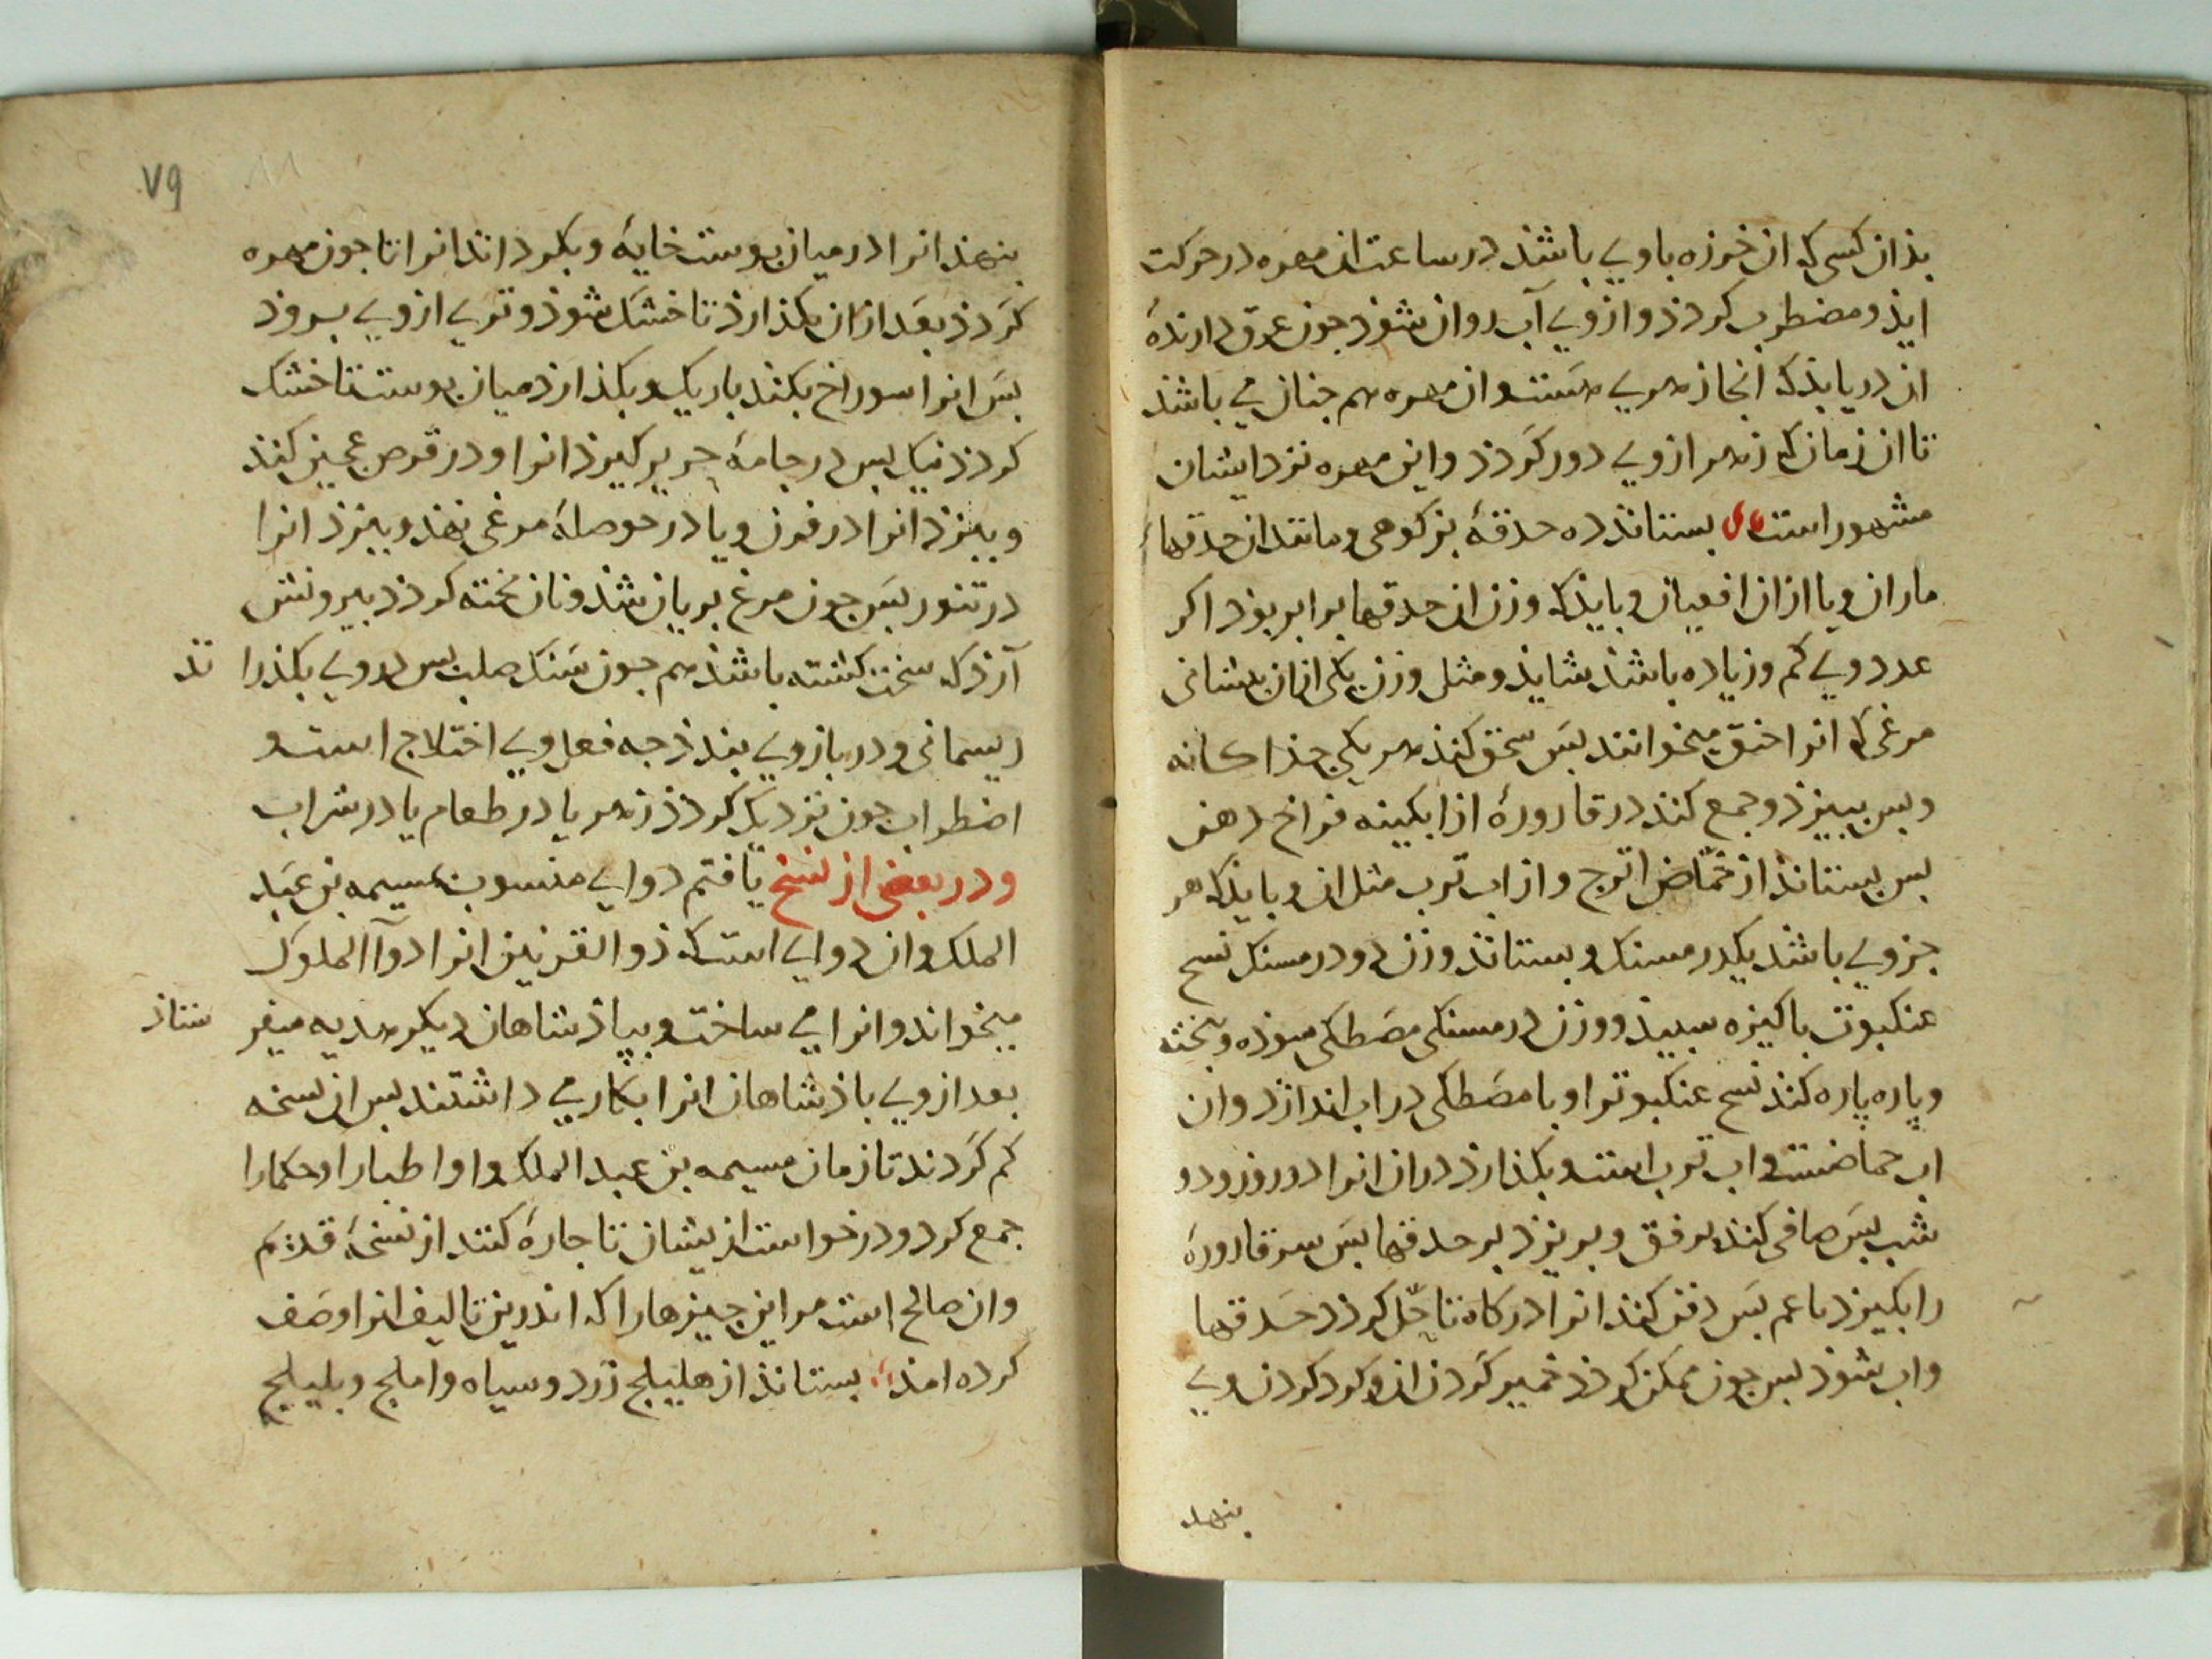 بذان کسی که ان خرزه باوی باشذ در ساعت ان مهره در حرکت
ایذ و مضطرب کردذ و از وی آب روان شوذ جون عرق دارندهٔ
ان دریابذ که انجا زهری هست و ان مهره هم جنان می باشذ
تا ان زمان که زهر از وی دور کردذ و این مهره نزد ایشان
مشهور است بستانند ده حدقهٔ بز کوهی و مانند ان حدقهاء
ماران و یا از ان افعیان و بایذ که وزن ان حدقها برابر بوذ اکر
عدد وی کم و زیاده باشذ شایذ و مثل وزن یکی از ان
مرغی که انرا میخوانند بس سحق کنند هر یکی جذا کانه
و بس ببیزذ و جمع کند در قارورهٔ از ابکینه فراخ دهن
بس بستانذ از حمّاض اترج و از اب ترب مثل ان و بایذ که هر
جزوی باشذ یکدرمسنک و بستانذ وزن دو درمسنک نسج
عنکبوت باکیزه سبیذ و وزن درمسنکی مصطکی سوذه و بخته
و پاره پاره کنند نسج عنکبوت را و با مصطکی در اب اندازذ و ان
اب حماضست و اب ترب است و بکذارذ در ان انرا دو روز و دو
شب بس صافی کنند برفق و بریزذ بر حدقها بس سر قارورهٔ
را بکیرذ بس دفن کند انرا در کاه تا حل کردذ حدقها
و اب شوذ بس جون ممکن کردذ خمیر کردن ان و کرد کردن وی
بنهد
٧٩
بنهذ انرا در میان بوست خایهٔ و بکرداند انرا تا جون مهره
کردذ بعد از ان بکذارذ تا خشک شوذ و تری از وی بروذ
بس انرا سوراخ بکند باریک و بکذارذ میان بوست تا خشک
کردذ نیک بس در جامهٔ حریر کیرذ انرا و در قرص عجین کند
و ببزذ انرا در فرن و یا در حوصلهٔ مرغی نهد و ببزذ انرا
در تنور بس جون مرغ بریان شذ و نان بخته کردذ بیرونش
آرذ که سخت کشته باشذ هم جون سنک صلب بس در وی بکذرا ند
ریسمانی و در بازوی بندذ جه فعل وی اختلاج است و
اضطراب جون نزدیک کردذ زهر یا در طعام یا در شراب
و در بعضی از نسخ یافتم دوایی منسوب بمسیمه بن عبد
الملک و ان دوایی است که ذو القرنین انرا دوآ الملوک
میخواند و انرا می ساخت و بپاذشاهان دیکر هدیه میفر ستاذ
بعد از وی باذشاهان انرا بکار می داشتند بس ان نسخه
کم کردند تا زمان مسیمه بن عبد الملک و او اطبا را و حکما را
جمع کرد و درخواست از یشان تا جارهٔ کنند از نسخهٔ قدیم
و ان صالح است مر این جیزها را که اندرین تالیف انرا وصف
کرده امذ بستانذ از هلیلج زرد و سیاه و املج و بلیلج